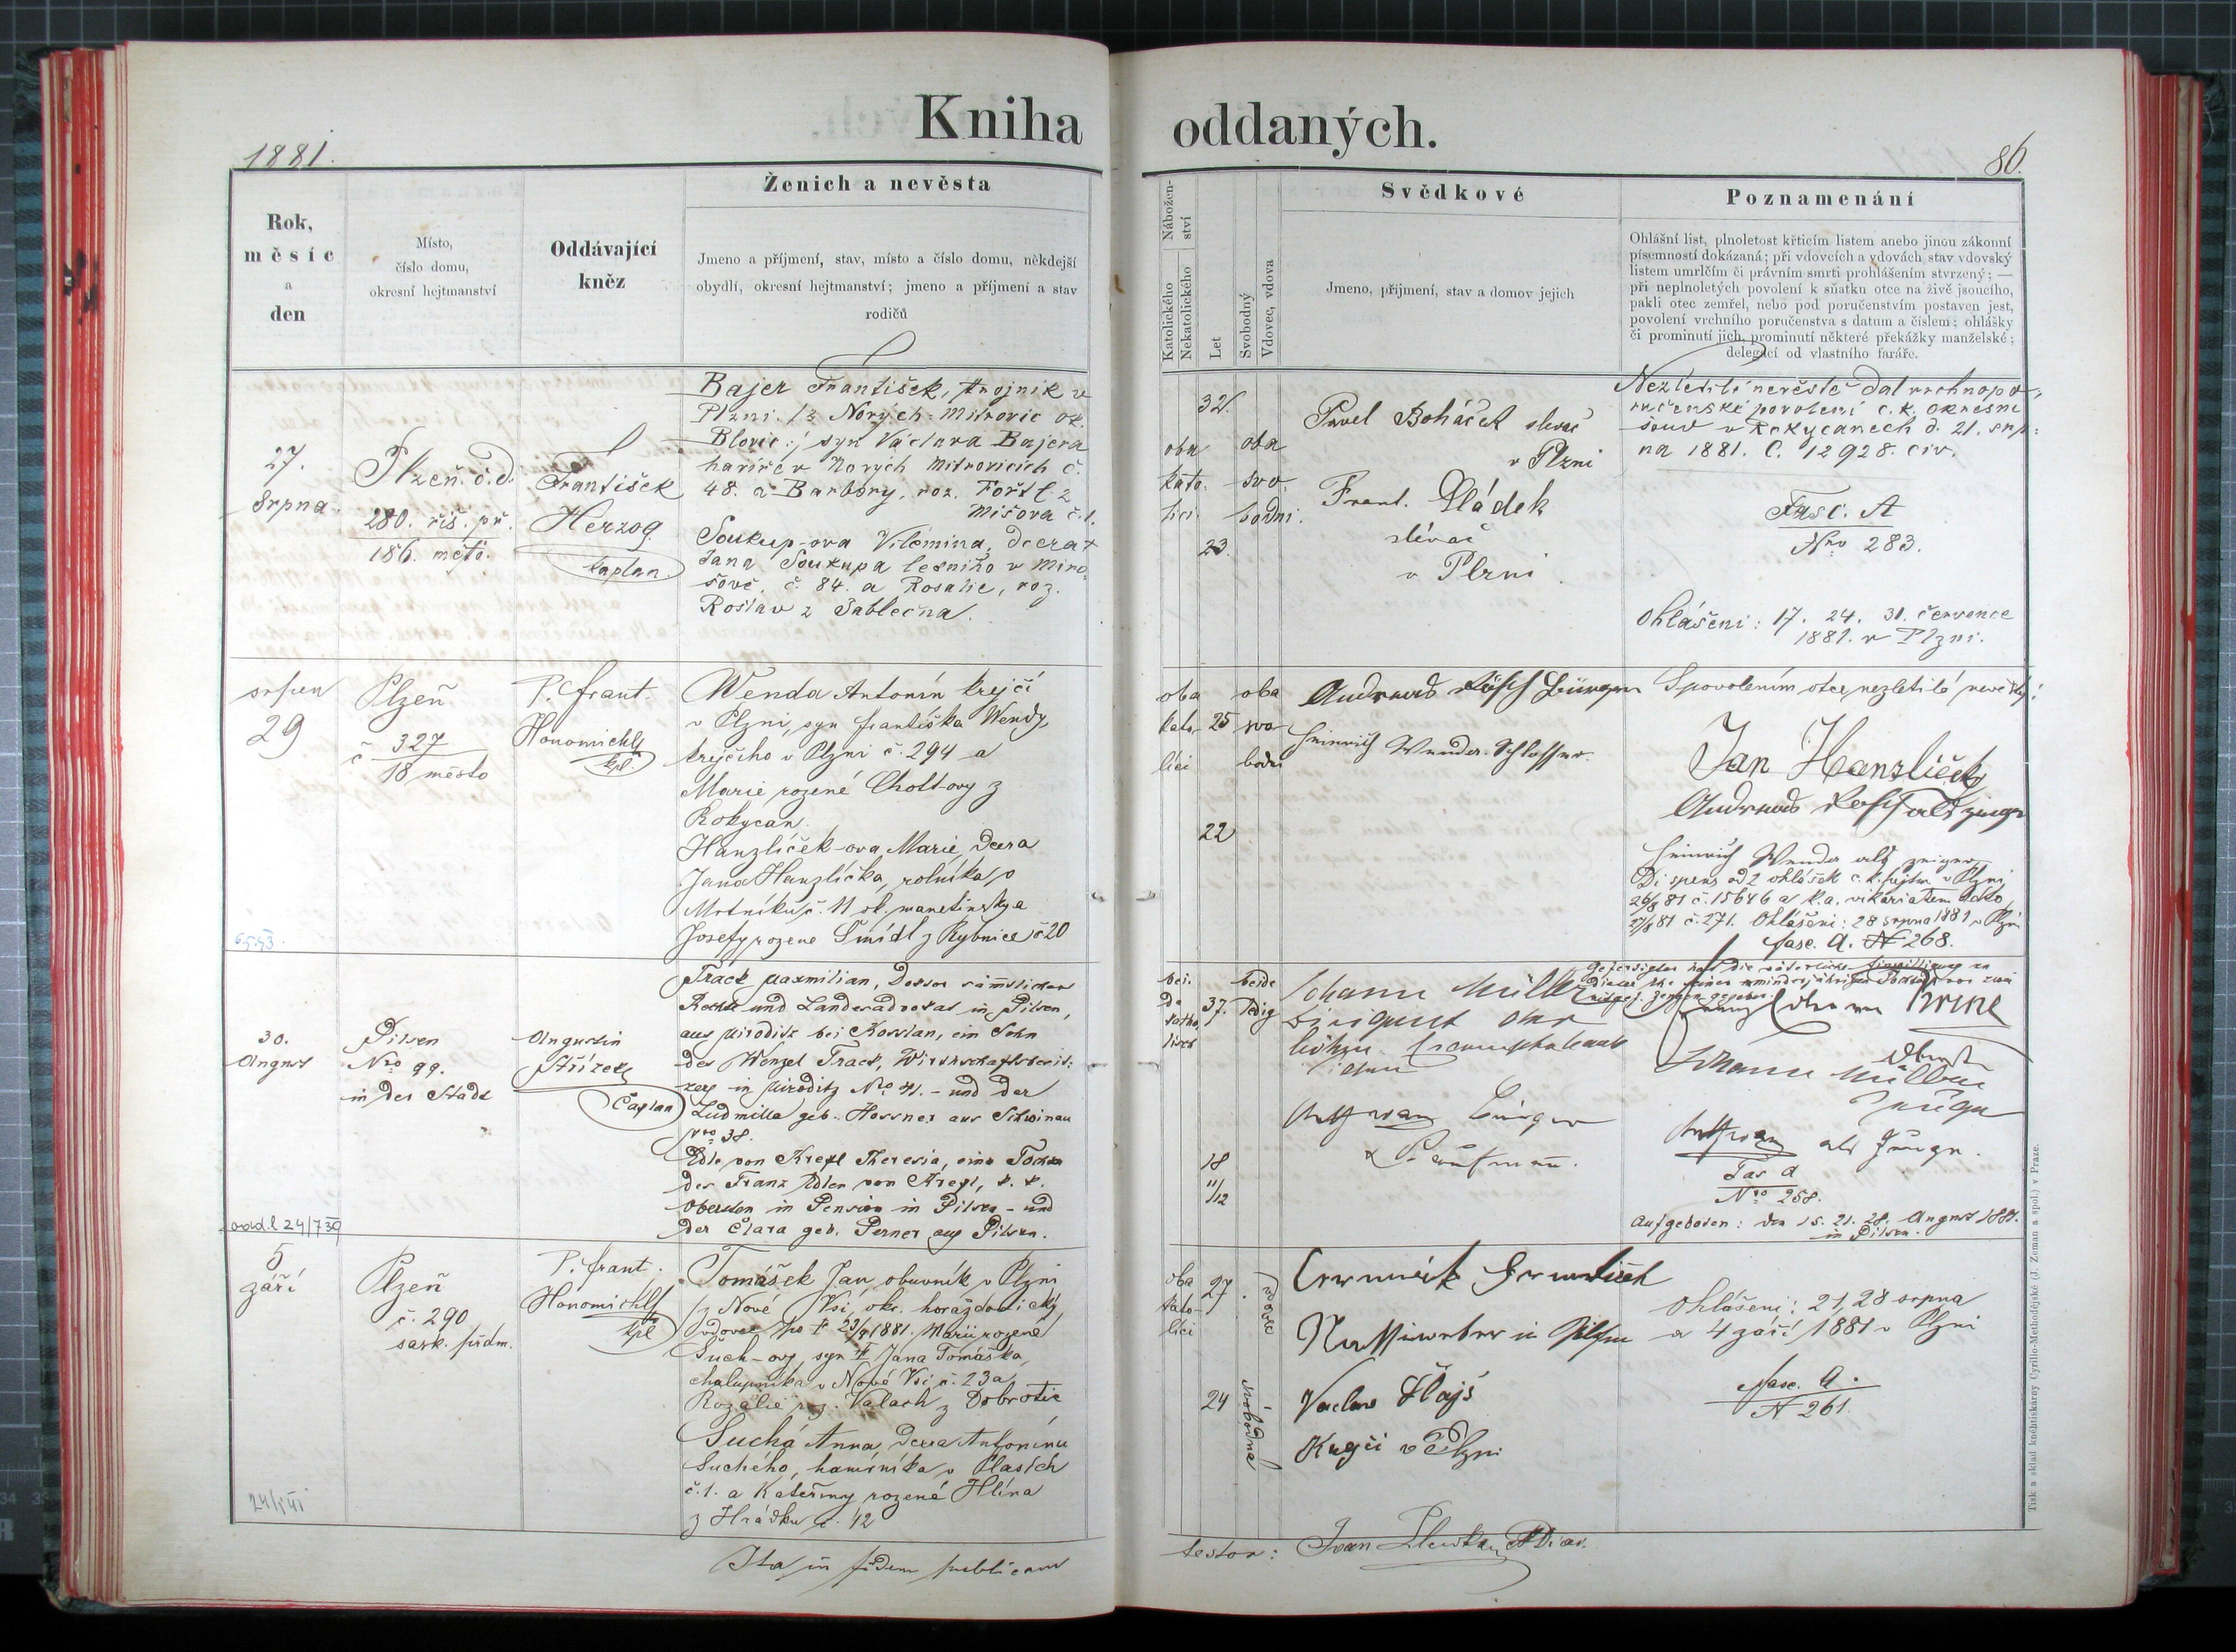 Kniha oddaných.
1881.
86.
Rok,
měsíc
a
den
Místo,
číslo domu,
okresní hejtmanství
Oddávající
kněz
Ženich a nevěsta
Jmeno a příjmení, stav, místo a číslo domu, někdejší
obydlí, okresní hejtmanství; jmeno a příjmení a stav
rodičů
Nábožen-
ství
Katolického
Nekatolického
Let
Svobodný
Vdovec, vdova
Svědkové
Jmeno, příjmení, stav a domov jejich
Poznamenání
Ohlášní list, plnoletost křticím listem anebo jinou zákonní
písemností dokázaná; při vdovcích a vdovách stav vdovský
listem umrlčím či právním smrti prohlášením stvrzený; —
při neplnoletých povolení k sňatku otce na živě jsoucího,
pakli otec zemřel, nebo pod poručenstvím postaven jest,
povolení vrchního poručenstva s datum a číslem; ohlášky
či prominutí jich, prominutí některé překážky manželské;
delegací od vlastního faráře.
27.
Srpna.
Plzeň. č. d.
280. říš. př.
186. měto.
František
Herzog
kaplan.
Bajer František, strojník v
Plzni /z Nových-Mitrovic ok.
Blovic:/ syn Václava Bajera
havíře v Nových Mitrovicích č.
48. a Barbory, roz. Fořtl z
Mišova č. 1.
Soukup-ova Vilemina, dcera
Jana Soukupa lesního v Miro-
šově. č. 84. a Rosalie, roz.
Roslav z
oba
kato-
lici.
32.
23.
oba
svo-
bodni.
Pavel Boháček slevač
v Plzni
Frant. Sládek
slévač
v Plzni
Nezletilé nevěstě dal vrchnopo-
ručenské povolení c. k. okresní
soud v Rokycanech d. 21. srp-
na 1881. C. 12928. civ.
Fasc. A
Nro 283.
Ohlášeni: 17. 24. 31. července
1881. v Plzni.
srpen
29
Plzeň
č 327
18 město
P. Frant.
Honomichl
kpl.
Wenda Antonín krejčí
v Plzni, syn Františka Wendy,
krejčího v Plzni č. 294 a
Marie rozené Cholt-ovy z
Rokycan.
Hanzlíček-ova Marie, dcera
Jana Hanzlíčka, rolníka v
Mrtníku č. 11 ok. manetínsky a
Josefy rozene Šmídl z Rybnice č 20
oba
kato-
líci
25
22
oba
svo
bodni
Heinrich Wenda Schlosser.
S povolením otce nezletilé nevěsty:
Jan Hanzlíček
Heinrich Wenda als zeiger
Dispens od 2 ohlášek c. k. hejtm v Plzni
26/8 81 č. 15646 a k. a. vikariatem
27/8 81 č. 271. Ohlášeni: 28 srpna 1881 v Plzni
fasc. A. N 268.
30.
August
Pilsen
Nro 99.
in der Stadt
Augustin
Střítek
Caplan
Track Maxmilian, Doctor sämtlicher
Rechte und Landesadvokat in Pilsen,
aus Miroditz bei Kosslan, ein Sohn
des Wenzel Track, Wirthschaftsbesit-
zers in Miroditz Nro 41. - und der
Ludmilla geb. Hossner aus Schwinau
Nro 38.
Edle von Krefl Theresia, eine Tochter
des Franz Edlen von Krefl, k. k.
Obersten in Pension in Pilsen - und
der Clara geb. Perner aus Pilsen.
bei-
de
katho-
lisch
37.
18
11/12
beide
ledig
Johann Müller
Dirigent der
Johann Müller
als
Fas A
Nro 258.
Aufgeboten: den 15. 21. 28. August 1881.
in Pilsen.
odd. l 24/7 39
5
září
Plzeň
č. 290
sask. předm.
P. Frant.
Honomichl
kpl
Tomášek Jan, obuvník v Plzni
/z Nové Vsi, okr. horažďovický
vdovec po † 23/7 1881. Marii rozené
Such-ové, syn † Jana Tomáška,
chalupníka v Nové Vsi č. 23 a
Rozálie roz. Valach z Dobrotic
Suchá Anna, dcera Antonína
Suchého, kamínika v Plasích
č. 1. a Kateřiny rozené Hlína
z Hrádku č. 42
oba
kato-
líci
27
24
vdovec
svobodna
in Pilsen
Vaclav Hajš
Krejčí v Plzni
Ohlášeni: 21, 28 srpna
a 4 září 1881 v Plzni
fasc. A.
N 261.
Ita in fidem publicam
testor:
Tisk a sklad kněhtiskárny Cyrillo-Methodějské (J. Zeman a spol.) v Praze.